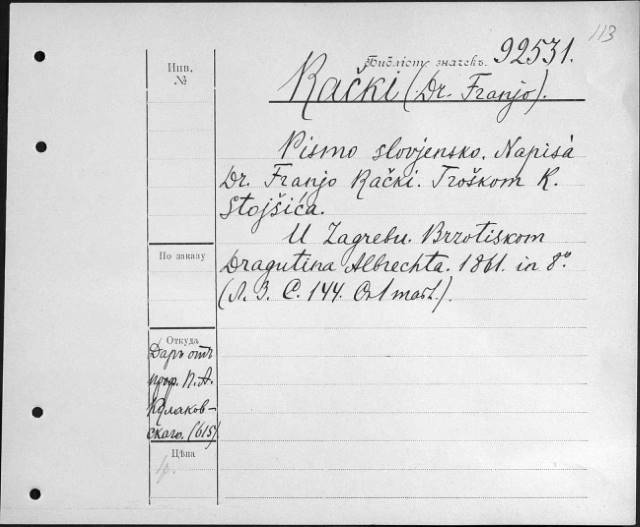 113
Библіот. значекъ. 92531.
Инв.
№
Rački (Dr. Franjo).
Pismo slovjensko. Napisà
Dr. Franjo Rački. Troškom K.
Stojšića.
U Zagrebu. Brzotiskom
Dragutina Albrechta. 1861. in 8º.
По заказу
Откуда
Даръ отъ
проф. П. А.
Кулаков-
скаго. (615)
Цѣна
1р.